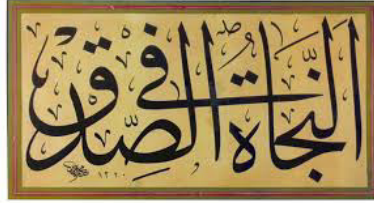 اَلنَّجَاةُ فِي الصِّدْقِ
١٣٢٠